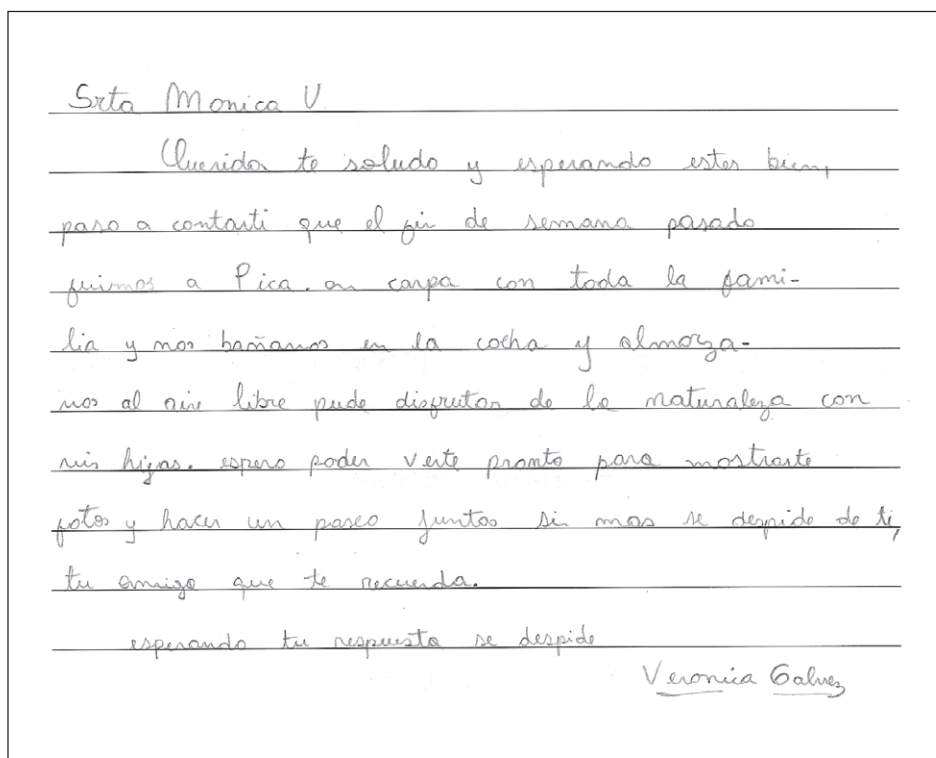 Srta Monica V.
Querida te saludo y esperando estes bien,
paso a contarti que el fin de semana pasado
fuimos a Pica. en carpa con toda la fami-
lia y nos bañamos en la cocha y almorza-
mos al aire libre pude disfrutar de la naturaleza con
mis hijas. espero poder verte pronto para mostrarte
fotos y hacer un paseo juntas sin mas se despide de ti,
tu amiga que te recuerda.
esperando tu respuesta se despide
Veronica Galvez